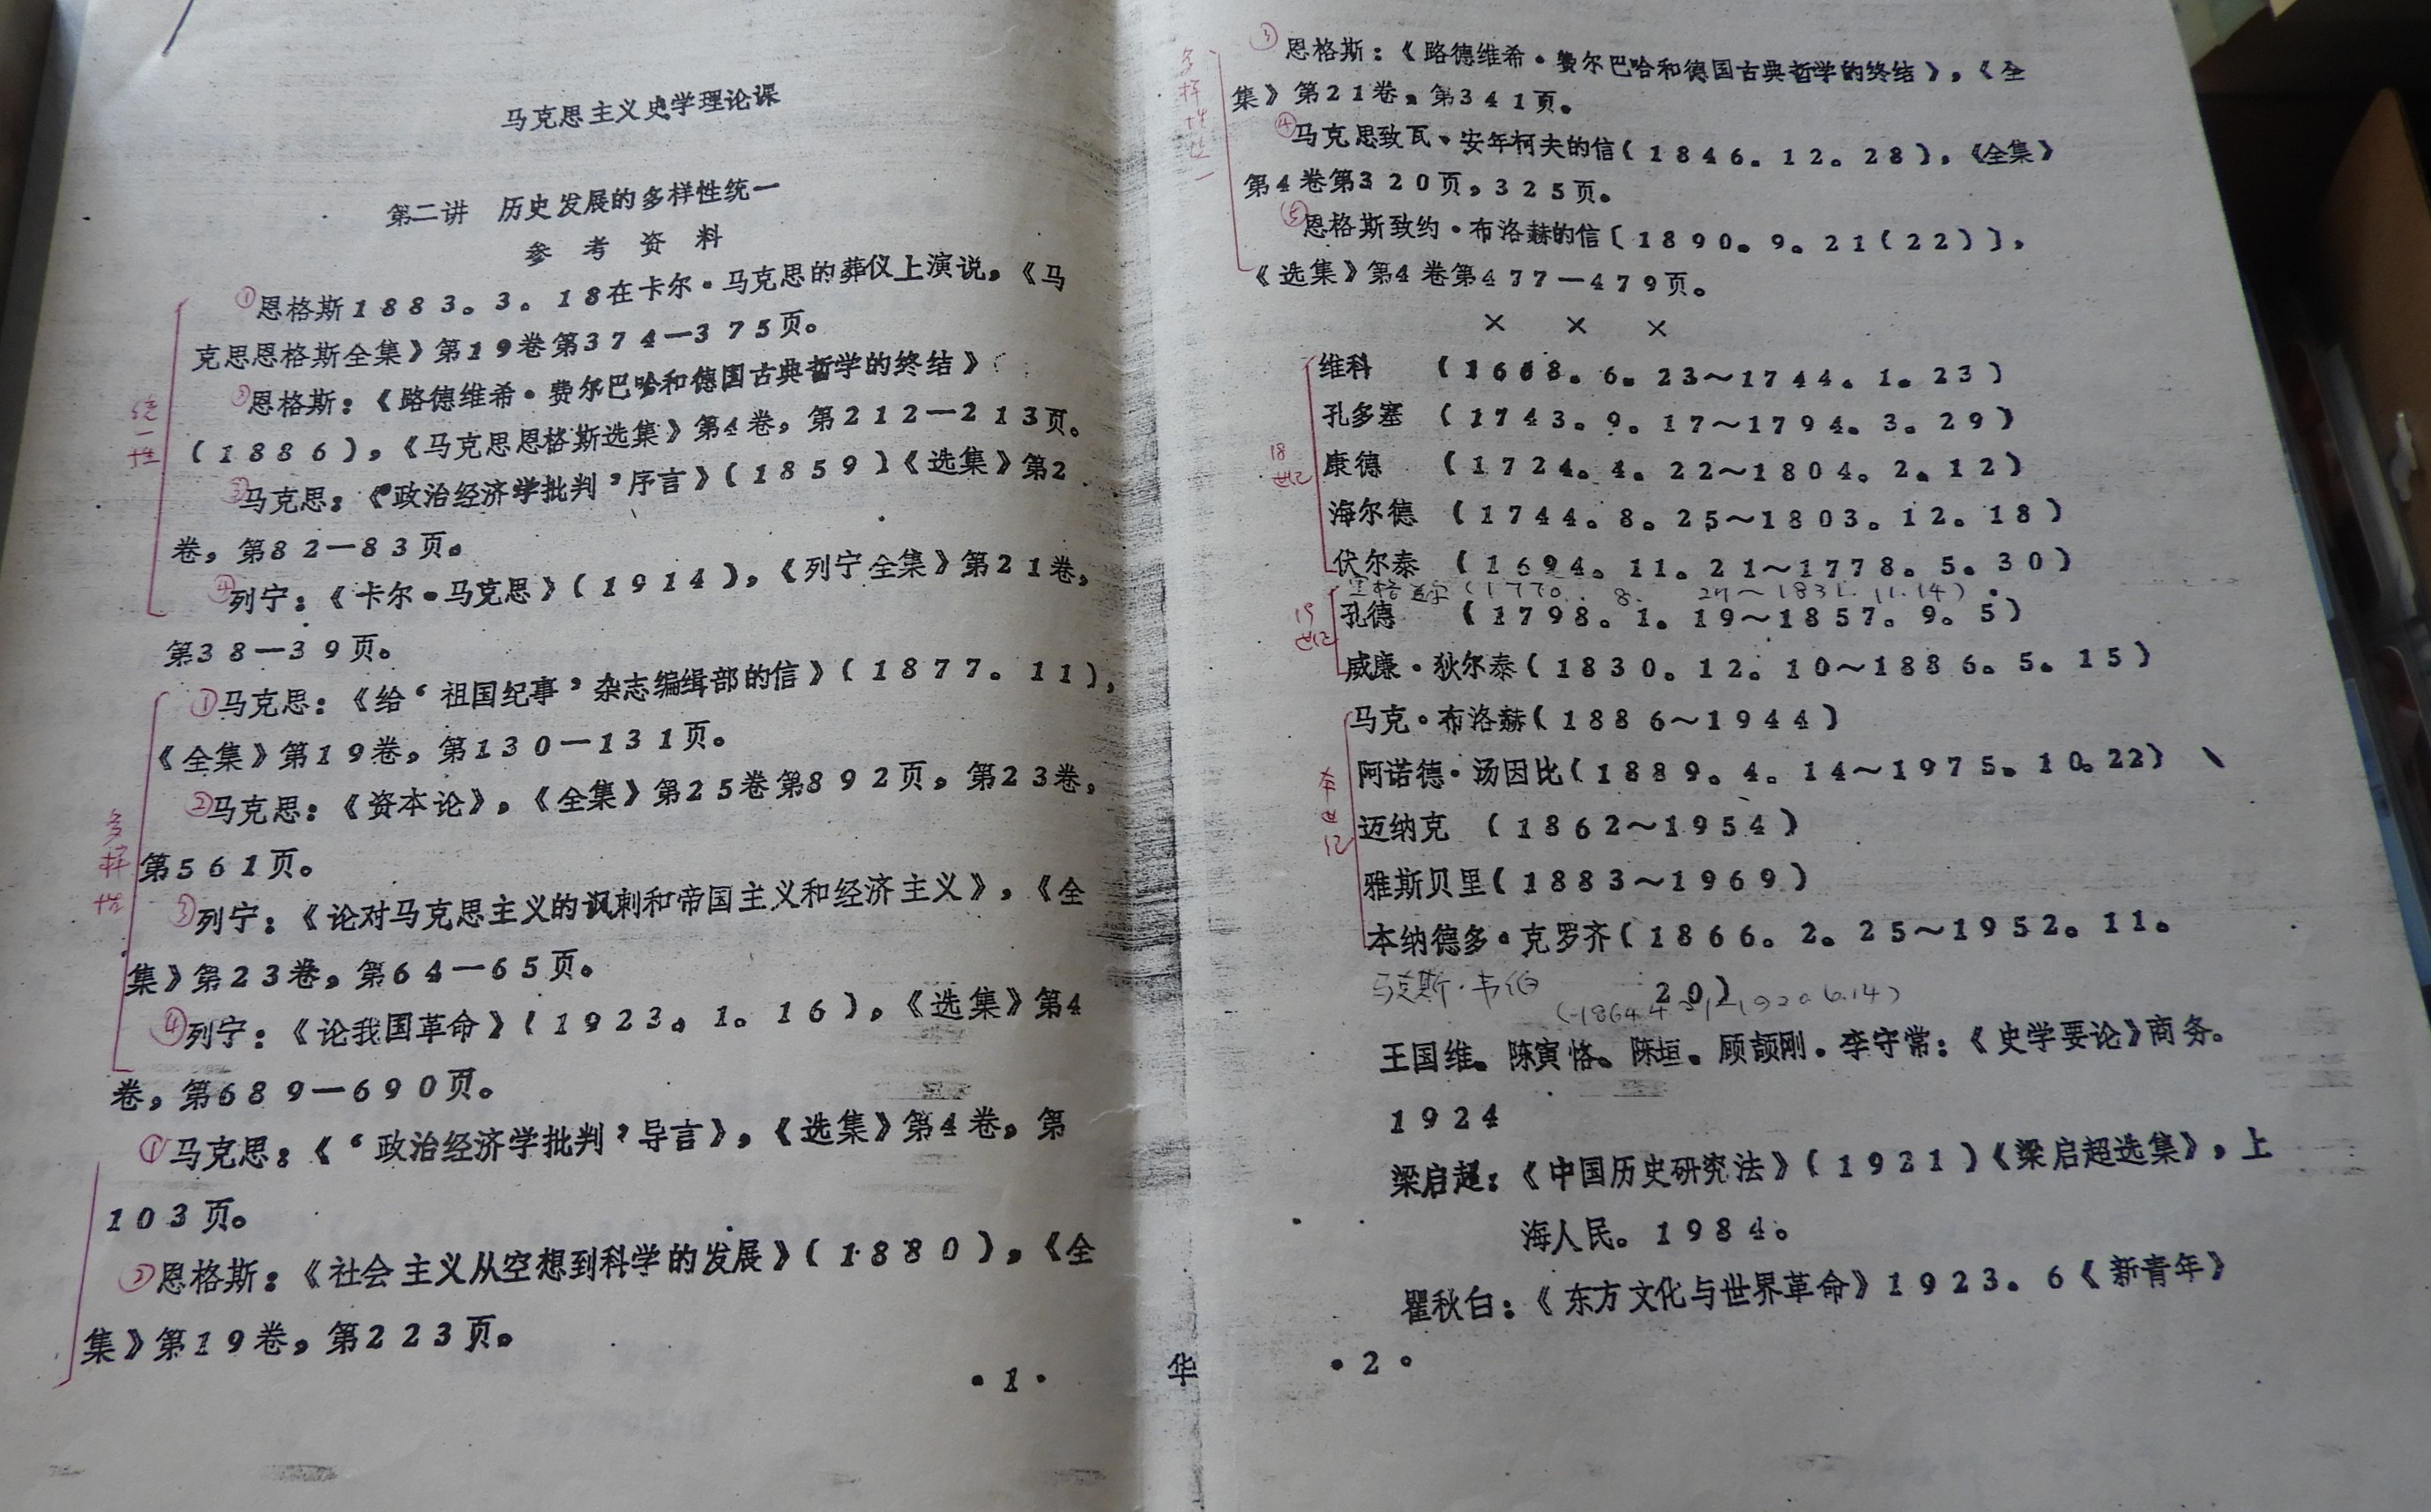 马克思主义史学理论课
第二讲 历史发展的多样性统一
参 考 资 料
①恩格斯1883。3。18在卡尔·马克思的葬仪上演说，《马
克思恩格斯全集》第19卷第374—375页。
②恩格斯：《路德维希·费尔巴哈和德国古典哲学的终结》
（1886），《马克思恩格斯选集》第4卷，第212—213页。
③马克思：《‘政治经济学批判’序言》（1859）《选集》第2
卷，第82—83页。
④列宁：《卡尔·马克思》（1914），《列宁全集》第21卷，
第38—39页。
统一性
①马克思：《给‘祖国纪事’杂志编缉部的信》（1877。11），
《全集》第19卷，第130—131页。
②马克思：《资本论》，《全集》第25卷第892页，第23卷，
第561页。
③列宁：《论对马克思主义的讽刺和帝国主义和经济主义》，《全
集》第23卷，第64—65页。
④列宁：《论我国革命》（1923。1。16），《选集》第4
卷，第689—690页。
多样性
①马克思：《‘政治经济学批判’导言》，《选集》第4卷，第
103页。
②恩格斯：《社会主义从空想到科学的发展》（1880），《全
集》第19卷，第223页。
·1·
③恩格斯：《路德维希·费尔巴哈和德国古典哲学的终结》，《全
集》第21卷，第341页。
④马克思致瓦·安年柯夫的信（1846。12。28），《全集》
第4卷第320页，325页。
⑤恩格斯致约·布洛赫的信〔1890。9。21（22）〕，
《选集》第4卷第477—479页。
多样性统一
× × ×
维科 （1668。6。23～1744。1。23）
孔多塞 （1743。9。17～1794。3。29）
康德 （1724。4。22～1804。2。12）
海尔德 （1744。8。25～1803。12。18）
伏尔泰 （1694。11。21～1778。5。30）
18世纪
黑格尔（1770. 8. 27～1831. 11.14）
孔德 （1798。1。19～1857。9。5）
威廉·狄尔泰（1830。12。10～1886。5。15）
19世纪
马克·布洛赫（1886～1944）
阿诺德·汤因比（1889。4。14～1975。10。22）
迈纳克 （1862～1954）
雅斯贝里（1883～1969）
本纳德多·克罗齐（1866。2。25～1952。11。
20）
本世纪
马克斯·韦伯
（1864.4.21～1920.6.14）
王国维。陈寅恪。陈垣。顾颉刚．李守常：《史学要论》商务。
1924
梁启超：《中国历史研究法》（1921）《梁启超选集》，上
海人民。1984。
瞿秋白：《东方文化与世界革命》1923。6《新青年》
华
·2。